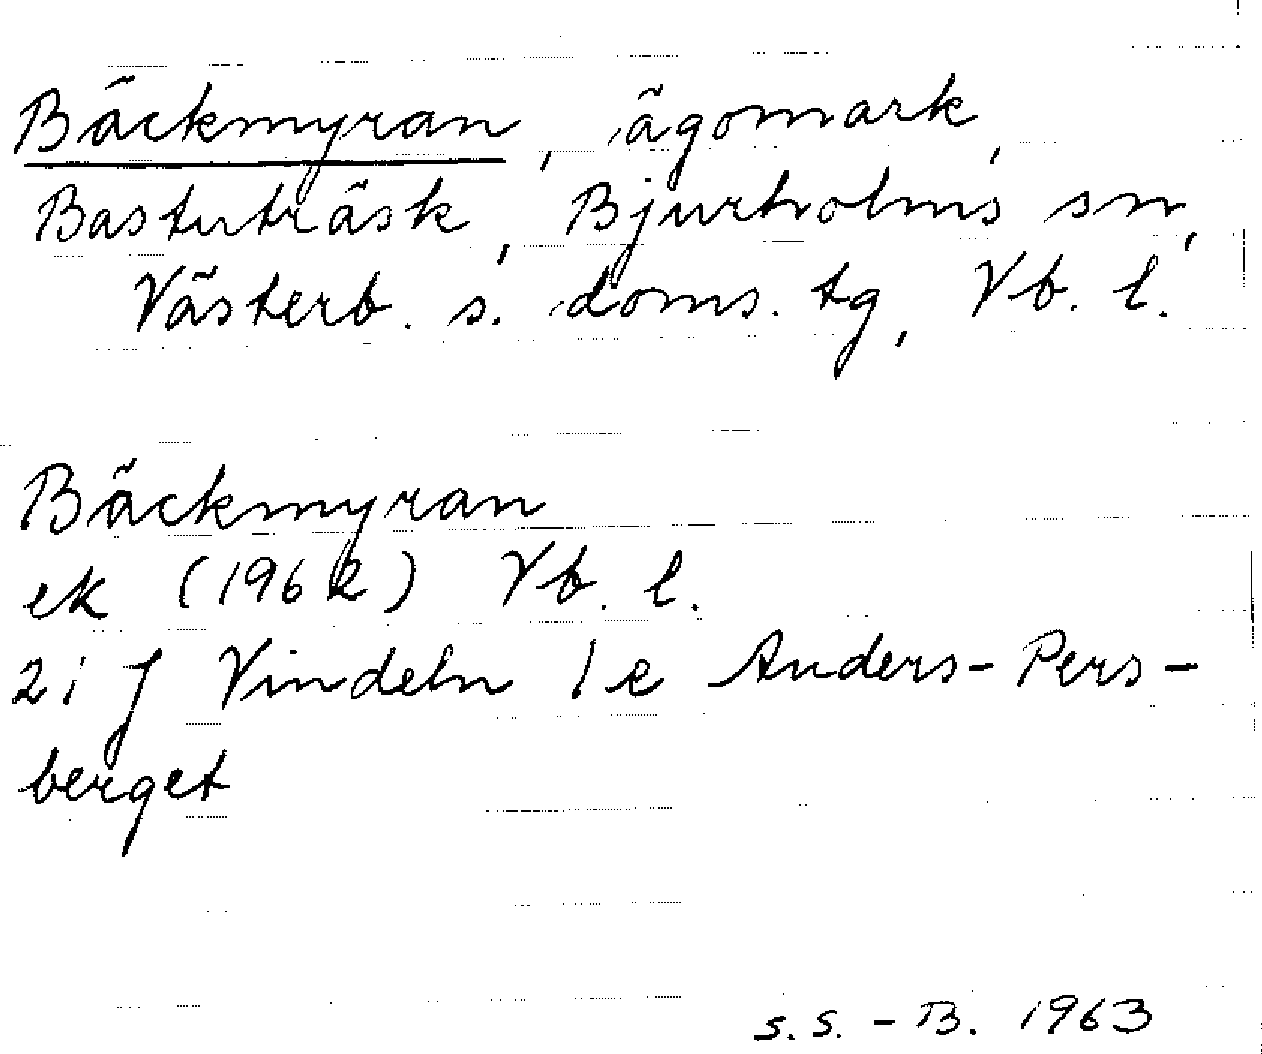 Bäckmyran, ägomark,
Bastuträsk, Bjurholms sn,
Västerb. s. doms. tg, Vb. l.
Bäckmyran
ek (1962) Vb. l.
21 J Vindeln 1 e Anders-Pers-
berget
S.S. - B. 1963